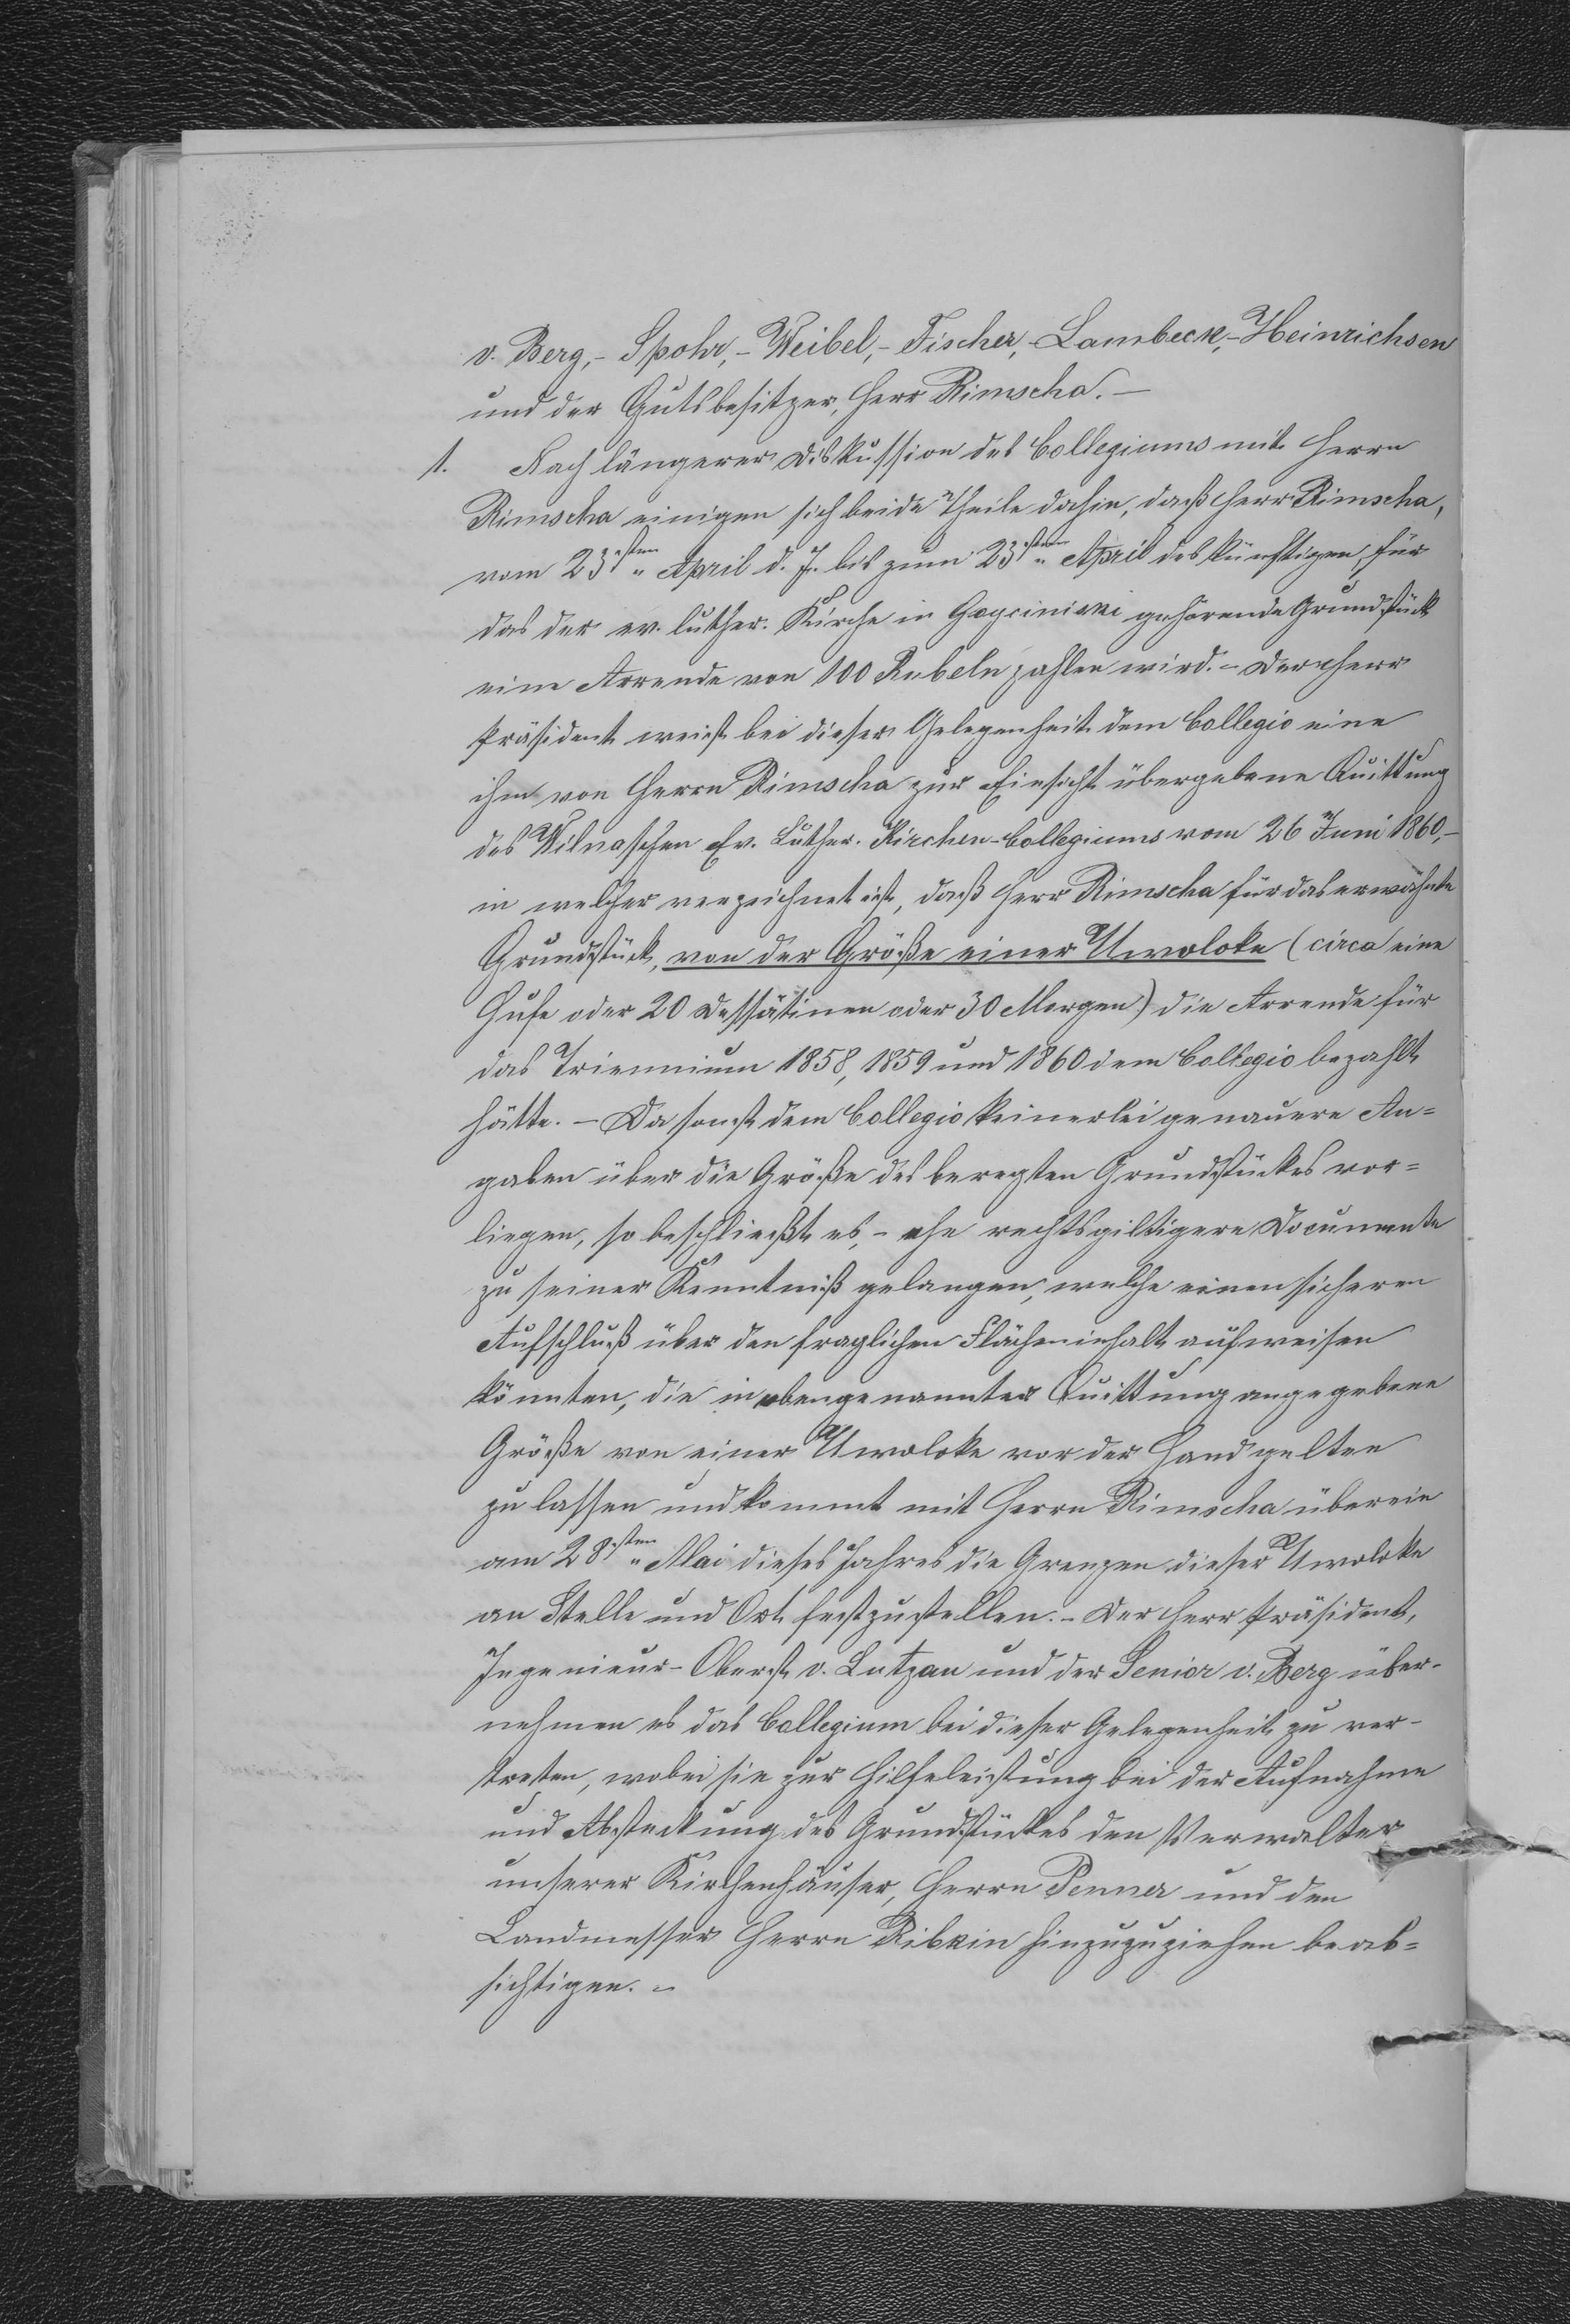 v. Berg,- Spohr,- Weibel,- Fischer,- Lambeck,- Heinrichsen
und der Gutsbesitzer, Herr Rimscha. —
1. Nach längerer Diskussion des Collegiums mit Herrn
Rimscha einigen sich beide Theile dahin, daß Herr Rimscha,
vom 23sten April d. J. bis zum 23sten April des künftigen, für
das der ev. luther. Kirche in gehörende Grundstück
eine Arrende von 100 Rubeln zahlen wird. – Der Herr
Präsident weist bei dieser Gelegenheit dem Collegio eine
ihm von Herrn Rimscha zur Einsicht übergebene Quittung
des Wilnaschen Ev. Luther. Kirchen-Collegiums vom 26 Juni 1860,–
in welcher verzeichnet ist, daß Herr Rimscha für das erwähnte
Grundstück, von der Größe einer Uwoloke (circa eine
Hufe oder 20 Dessätinen oder 30 Morgen) die Arrende für
das Triennium 1858, 1859 und 1860 dem Collegio bezahlt
hätte. – Da sonst dem Collegio keinerlei genauere An=
gaben über die Größe des beregten Grundstückes vor=
liegen, so beschließt es,- ehe rechtsgiltigere Documente
zu seiner Kenntniß gelangen, welche einen sicheren
Aufschluß über den fraglichen Flächeninhalt aufweisen
könnten, die in obengenannter Quittung angegebene
Größe von einer Uwoloke vor der Hand gelten
zu lassen und kommt mit Herrn Rimscha überein
am 28sten Mai dieses Jahres die Grenzen dieser Uwoloke
an Stelle und Ort festzustellen. – Der Herr Präsident,
Ingenieur-Oberst v. Lutzau und der Senior v. Berg über-
nehmen es das Collegium bei dieser Gelegenheit zu ver-
treten, wobei sie zur Hilfeleistung bei der Aufnahme
und Absteckung des Grundstückes den Verwalter
unserer Kirchenhäuser, Herrn Penner und den
Landmesser Herrn Ribkin hinzuzuziehen beab=
sichtigen. –